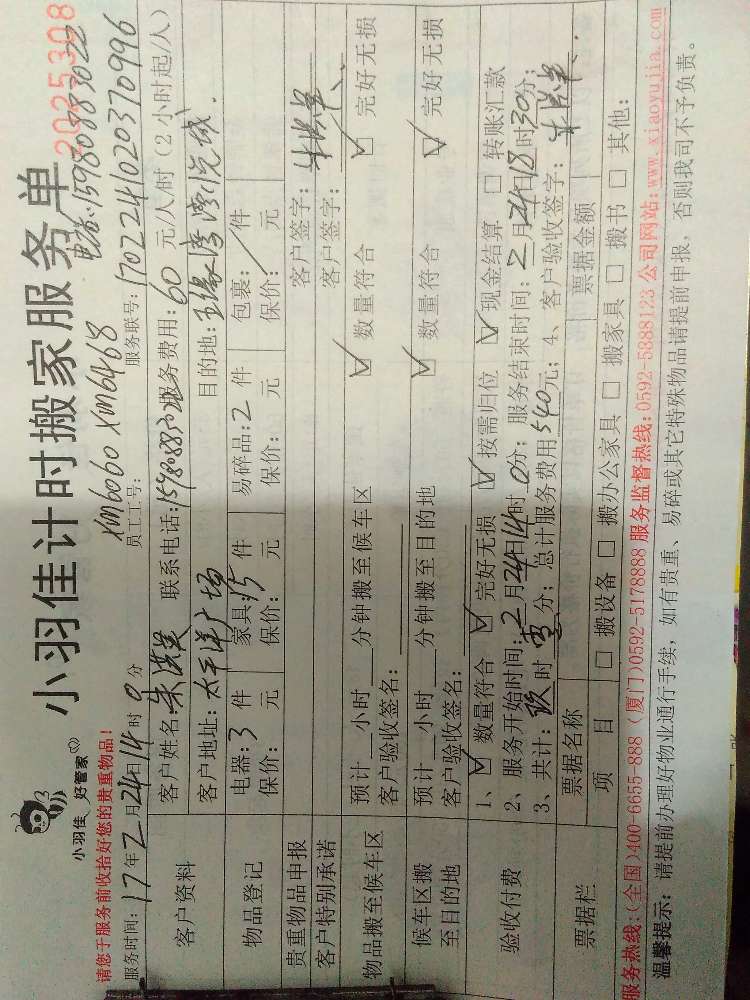 小羽佳计时搬家服务单
2025308
小羽佳 好管家
请您于服务前收拾好您的贵重物品！
xm6060 xm6468
电话:15980883022
服务时间: 17年2月24日14时0分 员工工号: 服务联号: 1702241020370996
客户资料
客户姓名: 联系电话:15980883022 服务费用:60元/人/时(2小时起/人)
客户地址:太平洋广场 目的地:五缘湾湾悦城.
物品登记
电器:3件 家具:15件 易碎品:2件 包裹:/件
保价: 元 保价: 元 保价: 元 保价: 元
贵重物品申报 客户签字:
客户特别承诺 客户签字:
物品搬至候车区
预计 小时 分钟搬至候车区 ☑ 数量符合 ☑ 完好无损
客户验收签名:
候车区搬至目的地
预计 小时 分钟搬至目的地 ☑ 数量符合 ☑ 完好无损
客户验收签名:
验收付费
1、☑ 数量符合 ☑ 完好无损 ☑ 按需归位 ☑ 现金结算 □ 转账汇款
2、服务开始时间:2月24日14时0分; 服务结束时间:2月24日18时30分;
3、共计:玖时零分; 总计服务费用540元; 4、客户验收签字:
票据栏
票据名称 票据金额
项目 □ 搬设备 □ 搬办公家具 □ 搬家具 □ 搬书 □ 其他:
服务热线:(全国)400-6655-888 (厦门)0592-5178888 服务监督热线:0592-5888123 公司网站:www.xiaoyujia.com
温馨提示: 请提前办理好物业通行手续, 如有贵重、易碎或其它特殊物品请提前申报, 否则我司不予负责。